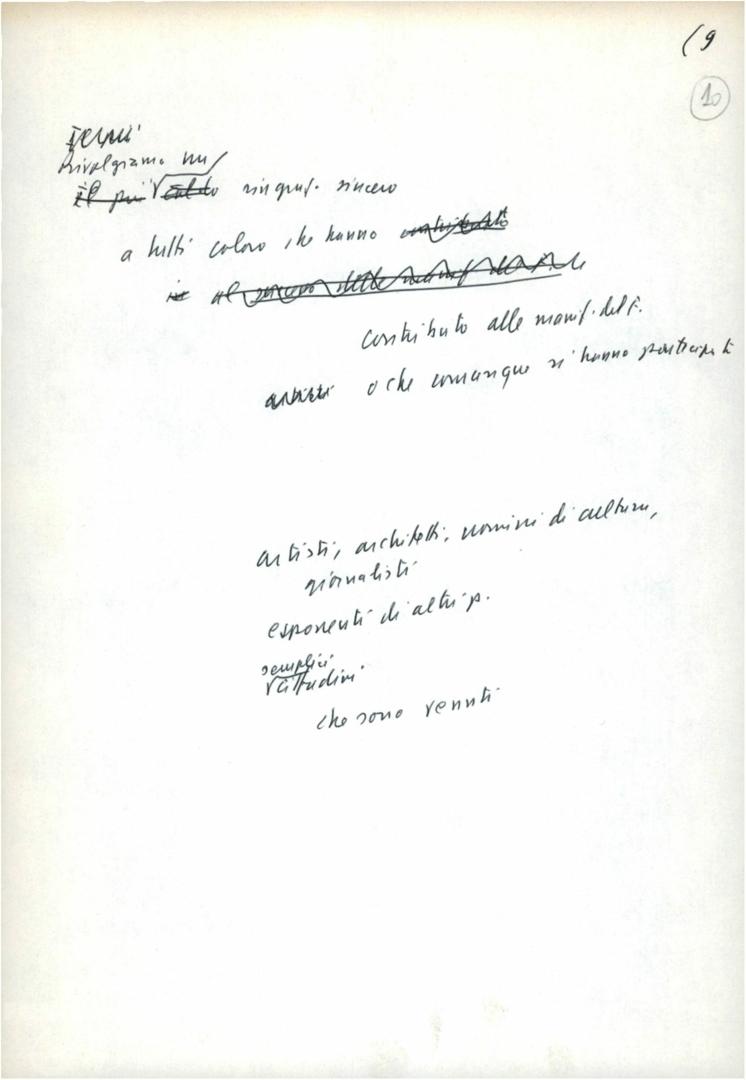 (9
10
Rivolgiamo un
il più caldo ringraz. sincero
a tutti coloro che hanno contribuito
al successo delle manif. della
contributo alle manif. del F.
artisti o che comunque vi hanno partecipato
artisti, architetti, uomini di cultura,
giornalisti
esponenti di altri p.
semplici
cittadini
che sono venuti